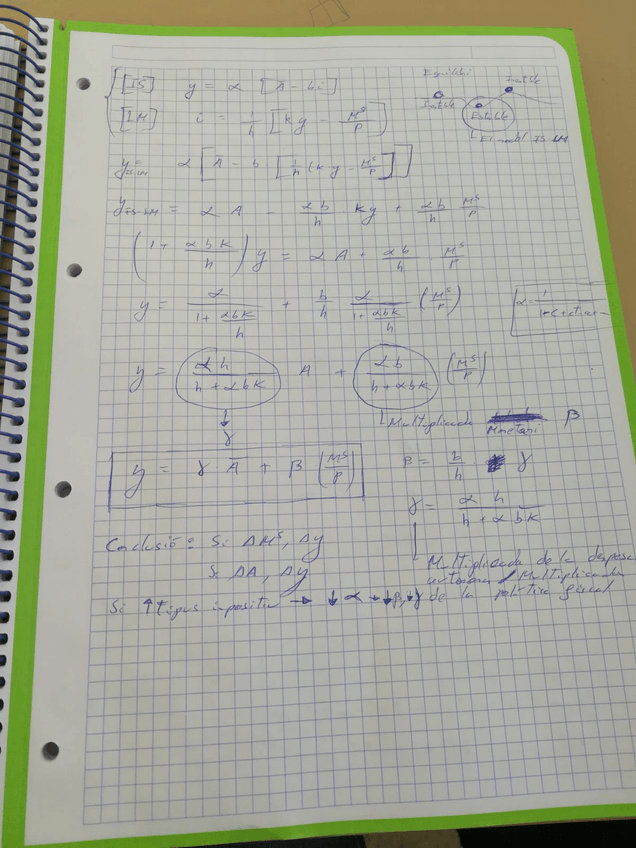 [IS] y = α [Ā - bi]
[LM] i = 1/h [ky - M^s/P]
Equilibri
Inestable
Estable
El model IS-LM
y_IS-LM = α [A - b [1/h (ky - M^s/P)]]
y_IS-LM = α A - αb/h ky + αb/h M^s/P
(1 + αbk/h) y = α A + αb/h M^s/P
y = α/(1 + αbk/h) + b/h α/(1 + αbk/h) (M^s/P)
y = αh/(h + αbk) A + αb/(h + αbk) (M^s/P)
γ
Multiplicador Monetari β
y = γ Ā + β (M^s/P)
β = b/h γ
γ = αh/(h + αbk)
Multiplicador de la despesa
autònoma / Multiplicador
de la política fiscal
Conclusió: Si ΔM^s, Δy
Si ΔA, Δy
Si ↑ tipus impositiu → ↓ α → ↓β, ↓γ